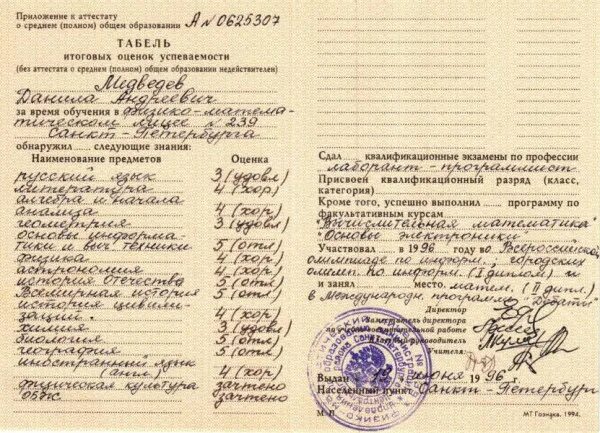 Приложение к аттестату
о среднем (полном) общем образовании А № 0625307
ТАБЕЛЬ
итоговых оценок успеваемости
(без аттестата о среднем (полном) общем образовании недействителен)
Медведев
Данила Андреевич
за время обучения в физико-матема-
тическом лицее № 239
Санкт-Петербурга
обнаружил следующие знания:
Наименование предметов Оценка
русский язык 3 (удовл)
литература 4 (хор)
алгебра и начала
анализа 4 (хор)
геометрия 3 (удовл)
основы информа-
тики и выч. техники 5 (отл)
физика 4 (хор)
астрономия 4 (хор)
история Отечества 5 (отл)
Всемирная история 5 (отл)
история цивили-
заций. 4 (хор)
химия 3 (удовл)
биология 5 (отл)
география 5 (отл)
иностранный язык
(англ) 4 (хор)
физическая культура зачтено
ОБЖ зачтено
Сдал квалификационные экзамены по профессии
лаборант-программист
Присвоен квалификационный разряд (класс,
категория)
Кроме того, успешно выполнил программу по
факультативным курсам
"Вычислительная математика"
"Основы электроники"
Участвовал в 1996 году во Всероссийской
олимпиаде по информ., городских
олимп. по информ. (I диплом) и
и занял место матем. (II дипл)
в Международн. программе "Дебаты"
Директор
Заместитель директора
по работе
руководитель
Учителя:
Выдан 19 июня 1996 г.
Населенный пункт Санкт-Петербург
М. П.
МТ Гознака. 1994.